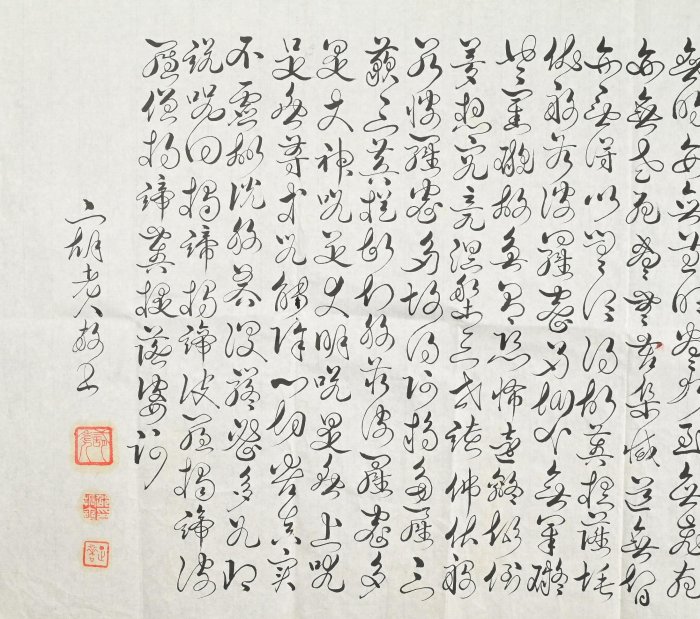 無明亦無無明盡乃至無老死
亦無老死盡無苦集滅道無智
亦無得以無所得故菩提薩埵
依般若波羅蜜多故心無罣礙
無罣礙故無有恐怖遠離顛倒
夢想究竟涅槃三世諸佛依般
若波羅蜜多故得阿耨多羅三
藐三菩提故知般若波羅蜜多
是大神咒是大明咒是無上咒
是無等等咒能除一切苦真實
不虛故說般若波羅蜜多咒即
說咒曰揭諦揭諦波羅揭諦波
羅僧揭諦菩提薩婆訶
胡老人敬書